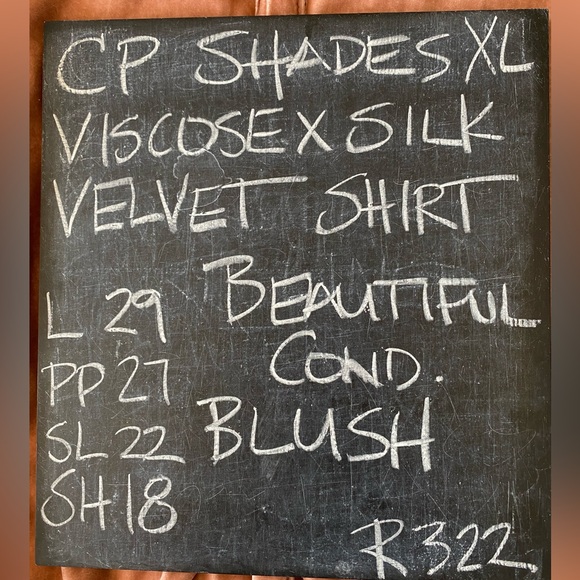 CP SHADES XL
VISCOSE X SILK
VELVET SHIRT
L 29
PP 27
SL 22
SH 18
BEAUTIFUL
COND.
BLUSH
R322